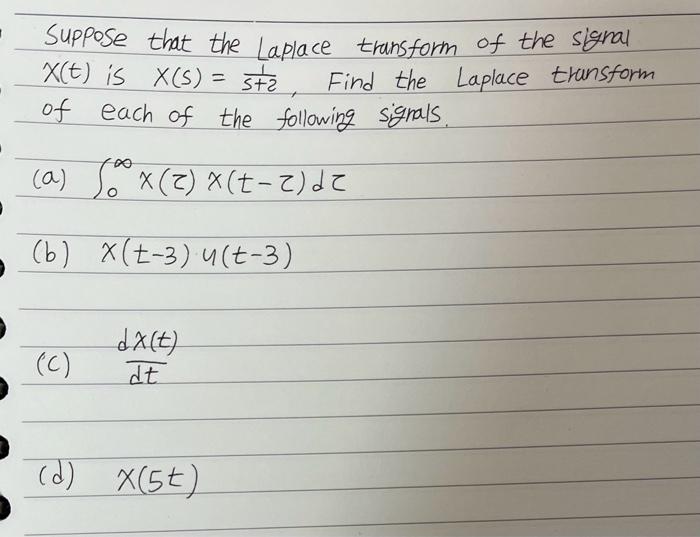 Suppose that the Laplace transform of the signal
X(t) is X(s) = 1/(s+2), Find the Laplace transform
of each of the following signals.
(a) ∫₀^∞ x(τ) x(t-τ)dτ
(b) x(t-3)·u(t-3)
(c) dx(t)/dt
(d) x(5t)